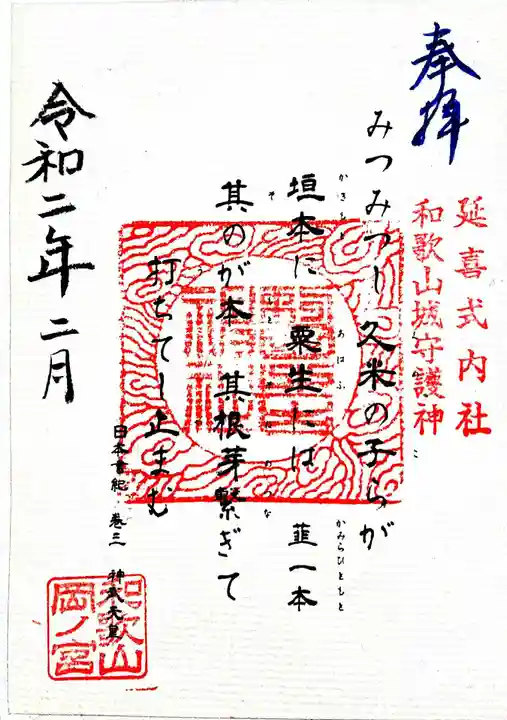 奉拝
延喜式内社
和歌山城守護神
みつみつし久米の子らが
垣本に 粟生には 韮一本
かきもと あはふ かみらひともと
其のが本 其根芽繋ぎて
打ちてし止まむ
日本書紀 巻三 神武天皇
令和二年二月
和歌山
岡ノ宮